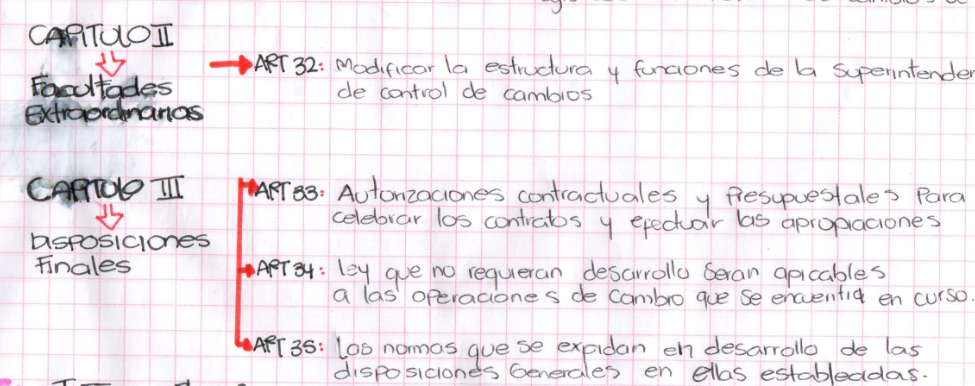 CAPITULO II
Facultades
Extraordinarias
ART 32: Modificar la estructura y funciones de la Superintender
de control de cambios
CAPITULO III
DISPOSICIONES
Finales
ART 33: Autorizaciones contractuales y Presupuestales Para
celebrar los contratos y efectuar las apropiaciones
ART 34: ley que no requieran desarrollo Seran apicables
a las operaciones de cambio que se encuentra en curso.
ART 35: Las normas que se expidan en desarrollo de las
disposiciones Generales en ellas establecidas.